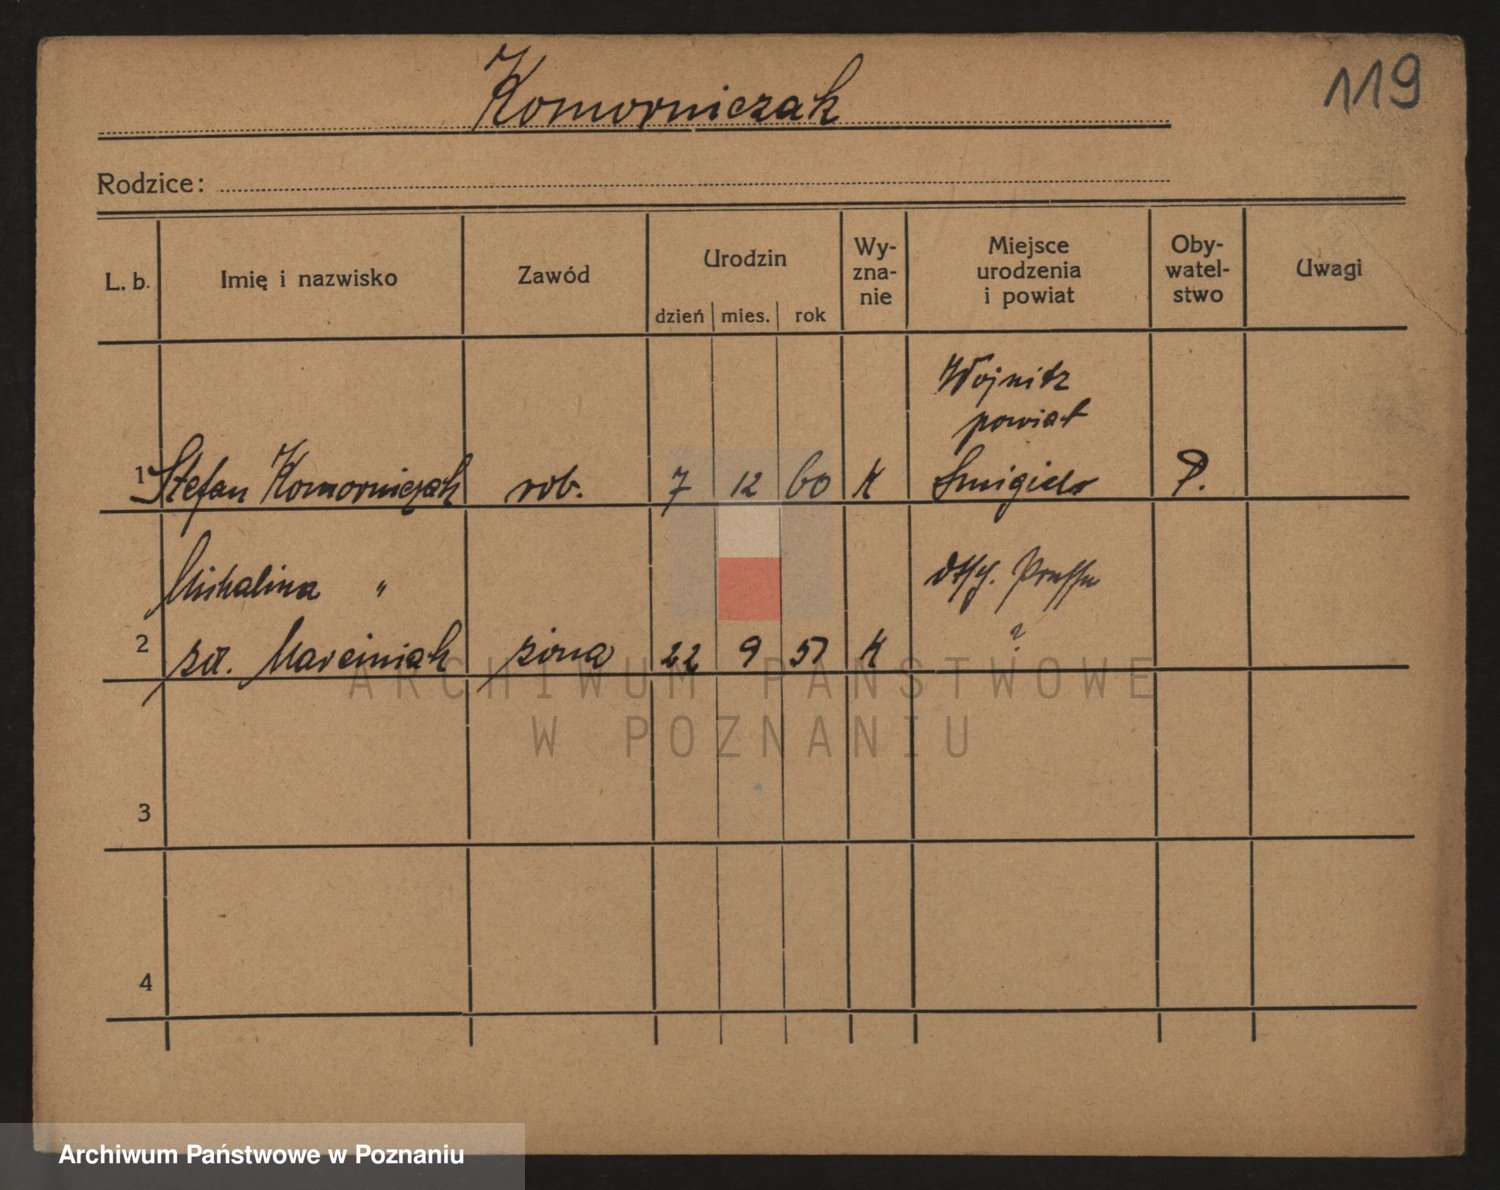 119
Komorniczak
Rodzice:
L. b.
Imię i nazwisko
Zawód
Urodzin
dzień
mies.
rok
Wy-
zna-
nie
Miejsce
urodzenia
i powiat
Oby-
watel-
stwo
Uwagi
Wojnitz
powiat
1 Stefan Komorniczak rob. 7 12 60 K Smigiel P.
Michalina "
2 zd. Marciniak żona 22 9 57 K ?
3
4
ARCHIWUM PAŃSTWOWE
W POZNANIU
Archiwum Państwowe w Poznaniu